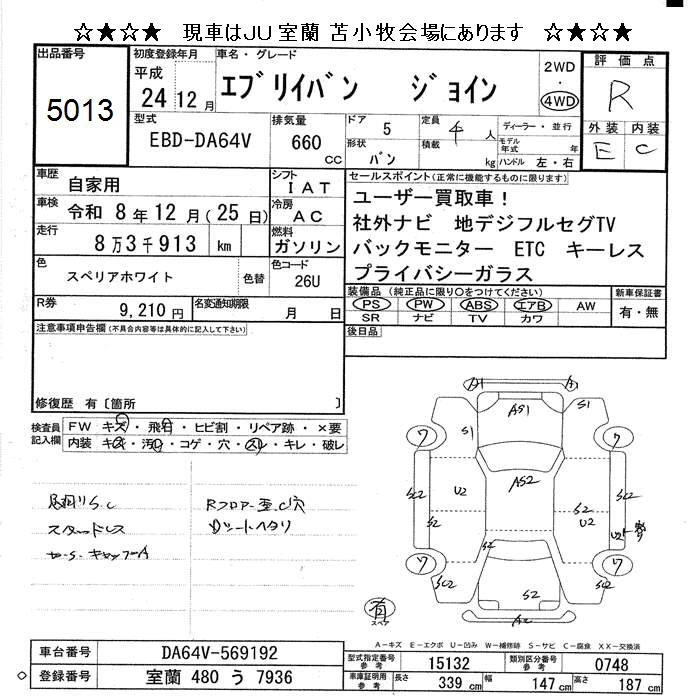 ☆★☆★ 現車はJU室蘭 苫小牧会場にあります ☆★☆★
出品番号
5013
初度登録年月
平成
24年12月
車名・グレード
エブリイバン ジョイン
2WD
・
4WD
評価点
R
外装 内装
E C
型式
EBD-DA64V
排気量
660
cc
ドア 5
形状 バン
定員 4人
積載 kg
ディーラー・並行
モデル年式 年
ハンドル 左・右
車歴 自家用
シフト IAT
車検 令和 8年12月(25日)
冷房 AC
走行 8万3千913 km
燃料 ガソリン
色 スペリアホワイト 色替
色コード 26U
R券 9,210円
名変通知期限 月 日
セールスポイント(正常に機能するものに限ります)
ユーザー買取車!
社外ナビ 地デジフルセグTV
バックモニター ETC キーレス
プライバシーガラス
装備品(純正品に限り○をつけてください)
PS PW ABS エアB AW
SR ナビ TV カワ
新車保証書
有・無
後日品
注意事項申告欄(不具合内容等は具体的に記入して下さい)
修復歴 有〔箇所 〕
検査員
記入欄
FW キズ・飛石・ヒビ割・リペア跡・×要
内装 キズ・汚れ・コゲ・穴・スレ・キレ・破レ
S.C
スタッドレス
Rフロアー歪、C穴
Dシートヘタリ
A1
AS1
S1
S1
ワ
ワ
AS2
SC2
U2
S2
U2
SC2
S2
S2
U2
ワ
ワ
SC2
S2
SC2
A2
有
スペア
A-キズ E-エクボ U-凹み W-補修跡 S-サビ C-腐食 XX-交換済
車台番号 DA64V-569192
登録番号 室蘭 480 う 7936
型式指定番号 参考 15132
類別区分番号 参考 0748
車庫証明用 参考
長さ 339cm
幅 147cm
高さ 187cm